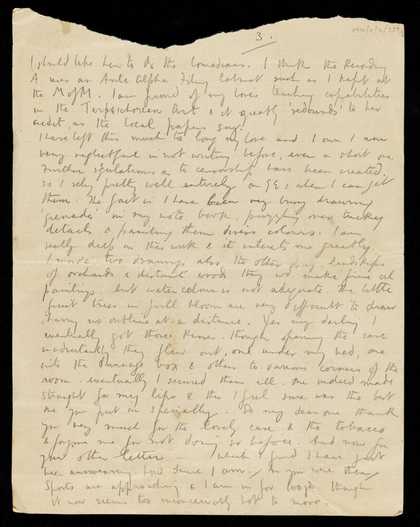 3.
I should like him to do the Comedians. I think the Recording
A was an Ante Alpha filing Cabinet such as I kept at
the M of M. I am proud of my loves teaching capabilities
in the Terpsichorean Art & it greatly 'redounds' to her
credit as the local papers say.
I have left this much too long my love and I am
very neglectful in not writing before, even a short one
regulations as to censorship have been created,
so I rely pretty well entirely on GEs when I can get
them. The fact is I have been very busy drawing
'grenades' in my note book, puzzling over tricky
details & painting them divers colours. I am
really deep in this work & it interests me greatly.
I made two drawings also the other day landscapes
of orchards & distant woods they wd. make fine oil
paintings but watercolour is not adequate the little
fruit trees in full bloom are very difficult to draw
having no outline at a distance. Yes my darling I
eventually got those though opening the case
inadvertently they flew out, one under my bed, one
into the box & others to various corners of the
room. eventually I secured them all. One indeed made
straight for my lips & this I feel sure was the last
one you put in specially. So my dear one thank
you very much for the lovely case & the tobacco
& forgive me for not doing so before. And now for
your other letter which I find I have just
been answering
Sports are approaching & I am in for though
it now seems too to move.